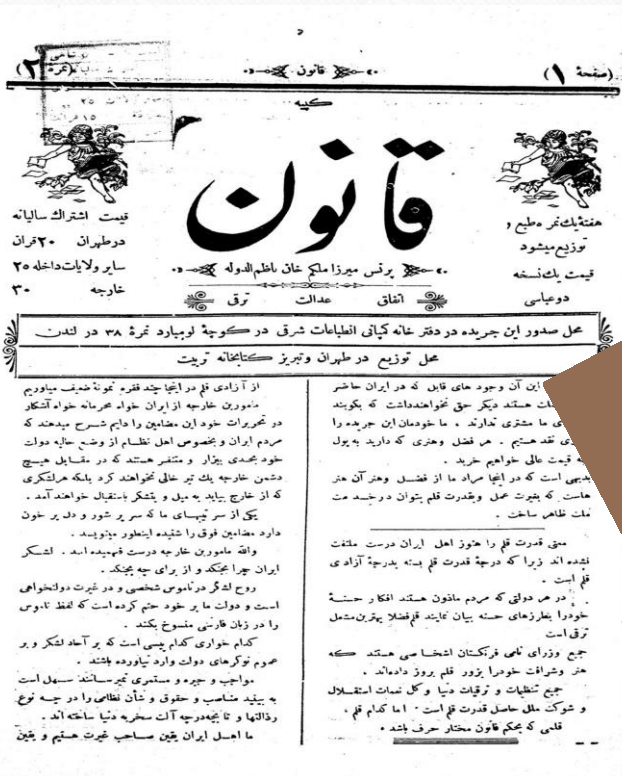 (صفحهٔ ۱)
قانون
(نمرهٔ ۲)
کپیه
قانون
هفتهٔ یك نمره طبع و
توزیع میشود
قیمت یك نسخه
دو عباسی
قیمت اشتراك سالیانه
در طهران ۲۰ قران
سایر ولایات داخله ۲۵
خارجه ۳۰
پرنس میرزا ملکم خان ناظم الدوله
اتفاق عدالت ترقی
محل صدور این جریده در دفتر خانه کمپانی انطباعات شرقی در کوچهٔ لومبارد نمرهٔ ۳۸ در لندن
محل توزیع در طهران و تبریز کتابخانه تربیت
این آن وجود های قابل که در ایران حاضر
هستند دیگر حق نخواهند داشت که بگویند
ما مشتری ندارند . ما خودمان این جریده را
نقد هستیم . هر فضل و هنری که دارید به پول
قیمت عالی خواهیم خرید .
بدیهی است که در اینجا مراد ما از فضل و هنر آن هنر
هاست که بغیرت عمل و بقدرت قلم بتوان در خدمت
ملت ظاهر ساخت .
معنی قدرت قلم را هنوز اهل ایران درست ملتفت
نشده اند زیرا که درجهٔ قدرت قلم بسته بدرجهٔ آزادی
قلم است .
در هر دولتی که مردم ماذون هستند افکار حسنهٔ
خودرا بطرزهای حسنه بیان نمایند قلم فضلا بهترین مشعل
ترقی است
جمیع وزرای نامی فرنگستان اشخاصی هستند که
هنر و شرافت خودرا بزور قلم بروز داده اند .
جمیع تنظیمات و ترقیات دنیا و کل نعمات استقلال
و شوکت ملل حاصل قدرت قلم است . اما کدام قلم .
قلمی که بحکم قانون مختار حرف باشد .
از آزادی قلم در اینجا چند فقره نمونهٔ ضعیف میاوریم
مامورین خارجه از ایران خواه محرمانه خواه آشکار
در تحریرات خود این مضامین را دایم شرح میدهند که
مردم ایران و بخصوص اهل نظام از وضع حالیه دولت
خود بحدی بیزار و متنفر هستند که در مقابل هیچ
دشمن خارجه یك تیر خالی نخواهند کرد بلکه هر لشکری
که از خارج بیاید به میل و بتشکر باستقبال خواهند آمد .
یکی از سرتیپهای ما که سر پر شور و دل پر خون
دارد مضامین فوق را شنیده اینطور مینویسد .
والله مامورین خارجه درست فهمیده اند . لشکر
ایران چرا بجنگد و از برای چه بجنگد .
روح لشکر در ناموس شخصی و در غیرت دولتخواهی
است و دولت ما بر خود حتم کرده است که لفظ ناموس
را در زبان فارسی منسوخ بکند .
کدام خواری کدام پیسی است که بر آحاد لشکر و بر
عموم نوکرهای دولت وارد نیاورده باشند .
مواجب و جیره و مستمری نمیرسانند سهل است
به بینید مناصب و حقوق و شأن نظامی را در چه نوع
رذالتها و تا بچه درجه آلت سخریه دنیا ساخته اند .
ما اهل ایران یقین صاحب غیرت هستیم و یقین